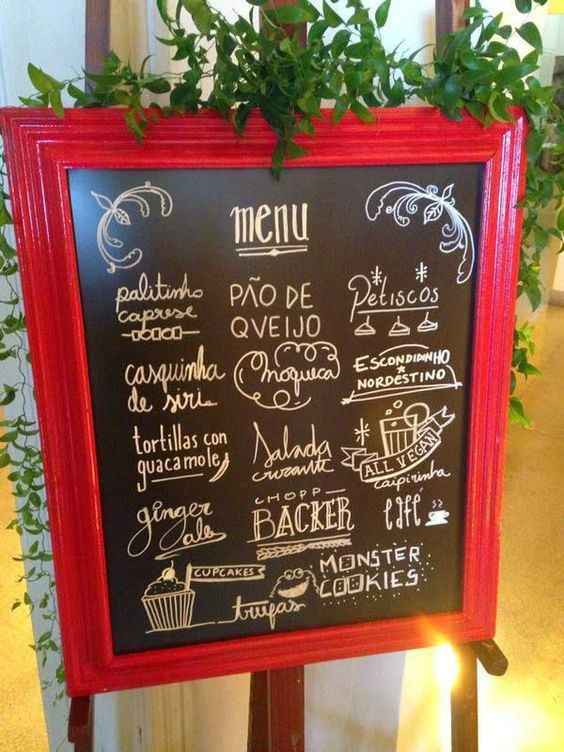 menu
palitinho
caprese
PÃO DE
QVEIJO
Petiscos
casquinha
de siri
Moqueca
ESCONDIDINHO
NORDESTINO
tortillas con
guacamole
Salada
crocante
ALL VEGAN
caipirinha
ginger
ale
CHOPP
BACKER
café
CUPCAKES
trufas
MONSTER
COOKIES